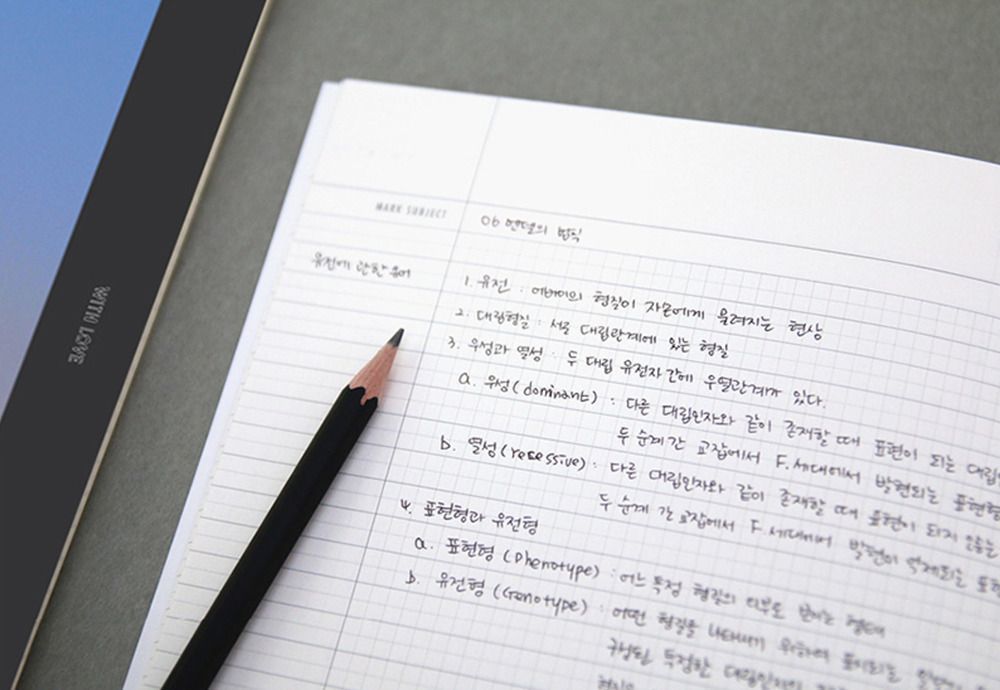 WITH LOVE
MARK SUBJECT
06 멘델의 법칙
유전에 관한 용어
1. 유전 : 어버이의 형질이 자손에게 물려지는 현상
2. 대립형질 : 서로 대립관계에 있는 형질
3. 우성과 열성 : 두 대립 유전자간에 우열관계가 있다.
a. 우성(dominant) : 다른 대립인자와 같이 존재할 때 표현이 되는 대립
두 순계간 교잡에서 F.세대에서 발현되는 표현형
b. 열성(recessive) : 다른 대립인자와 같이 존재할 때 표현이 되지 않는
두 순계간 교잡에서 F.세대에서 발현이 억제되는 표현
4. 표현형과 유전형
a. 표현형 (Phenotype) : 어느 특정 형질의 외부로
b. 유전형 (Genotype) : 어떤 형질을 나타내기 위하여 표시되는
특정한 대립인자의